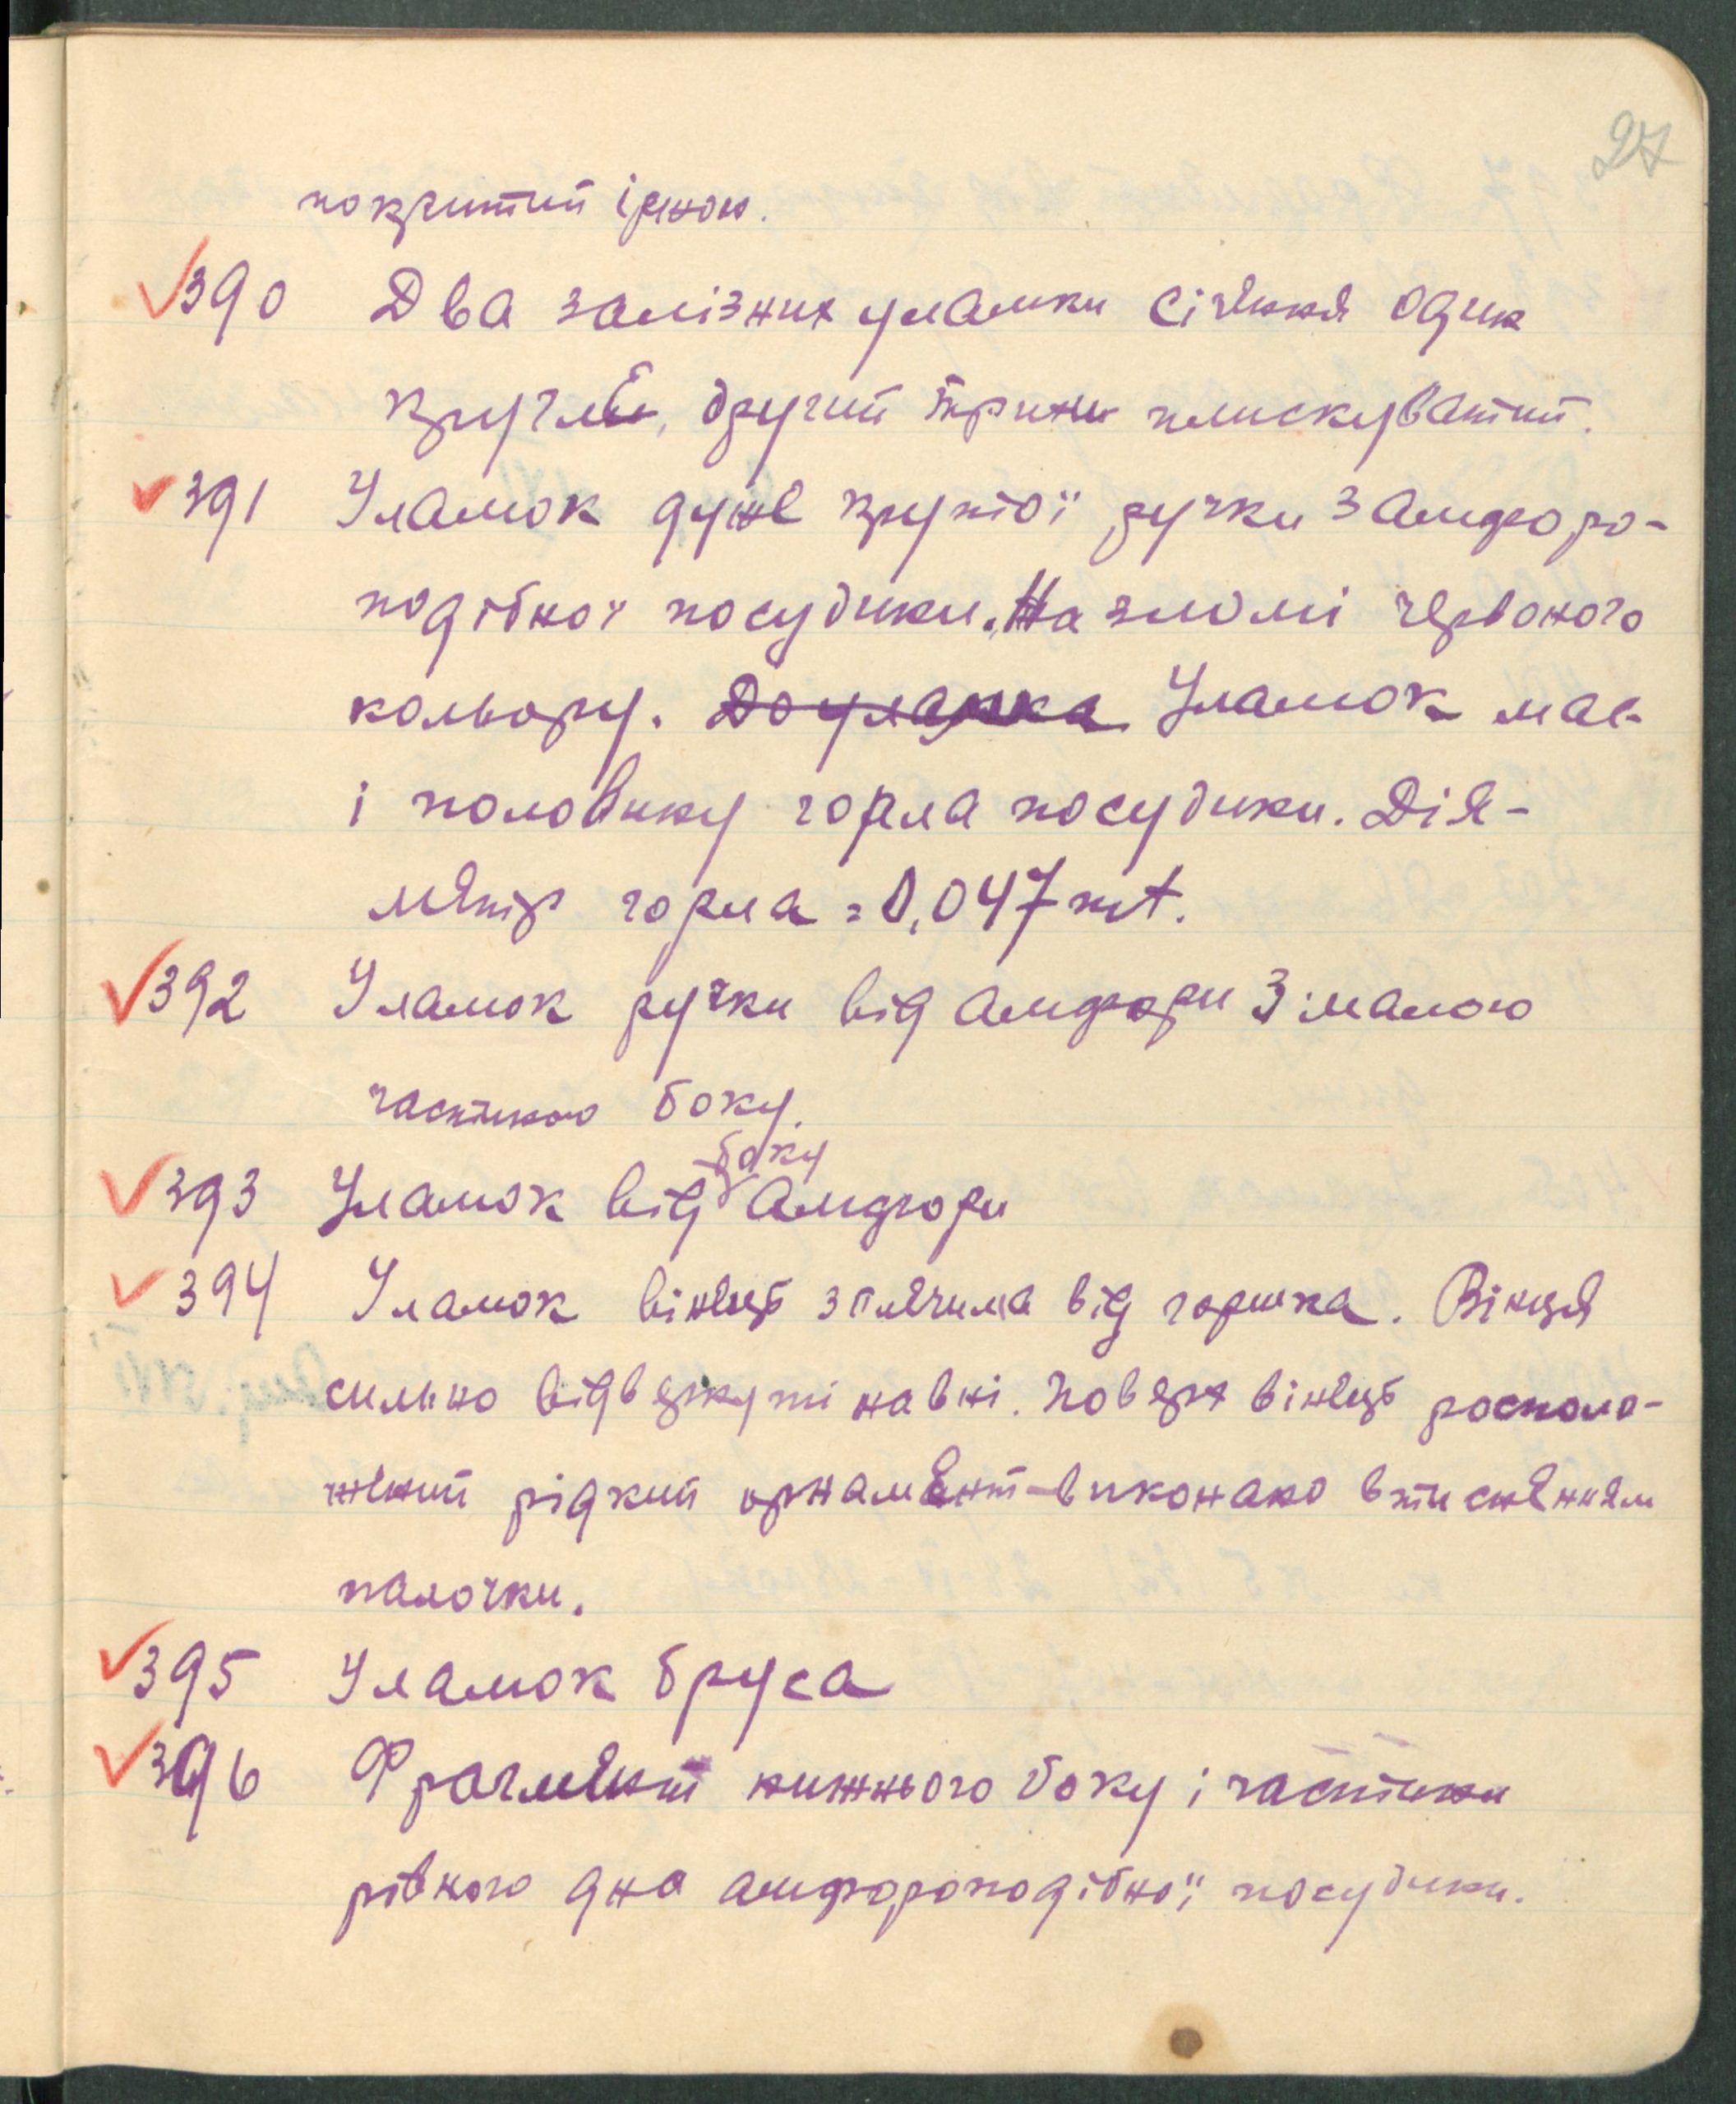 27
покритий іржою.
✓390 Два залізних уламки січення один
круглий, другий трохи плискуватий.
✓391 Уламок дуже крутої ручки з амфоро-
подібної посудини. На зломі червоного
кольору. До уламка Уламок має
і половину горла посудини. Дія-
метр горла = 0,047 mt.
✓392 Уламок ручки від амфори з малою
частиною боку.
боку
✓393 Уламок від амфори
✓394 Уламок вінець з плечима від горшка. Вінця
сильно відвернуті навні. Поверх вінець розполо-
жений рідкий орнамент-виконано втисненням
палочки.
✓395 Уламок бруса
✓396 Фрагмент нижнього боку і частини
рівного дна амфороподібної посудини.